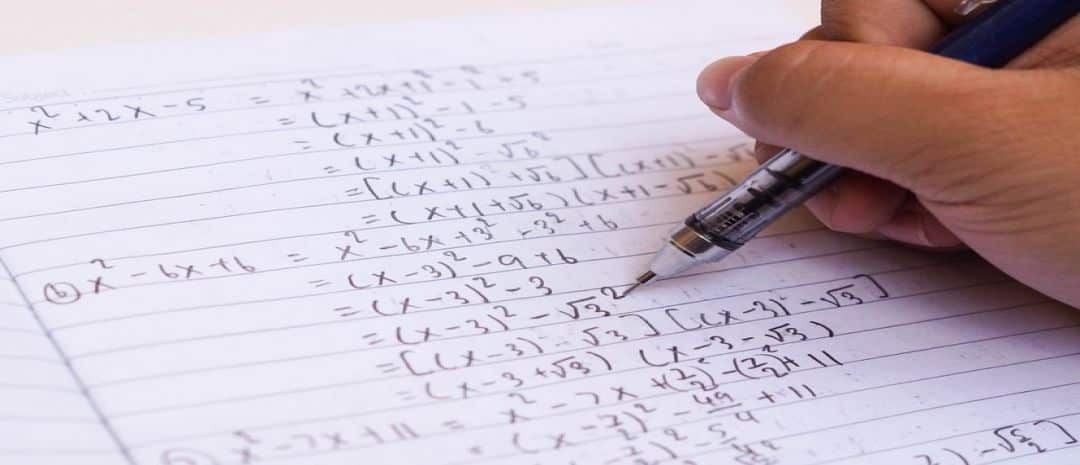 x² + 2x - 5 = x² + 2x + 1² - 1² - 5
= (x+1)² - 1 - 5
= (x+1)² - 6
= (x+1)² - √6²
= [(x+1) + √6] [(x+1) - √
= (x+1+√6)(x+1-√6)
(b) x² - 6x + 6 = x² - 6x + 3² - 3² + 6
= (x-3)² - 9 + 6
= (x-3)² - 3
= (x-3)² - √3²
= [(x-3) - √3] [(x-3) - √3]
= (x-3+√3) (x-3-√3)
x² - 7x + 11 = x² - 7x + (7/2)² - (7/2)² + 11
= (x - 7/2)² - 49/4 + 11
)² - 5/4